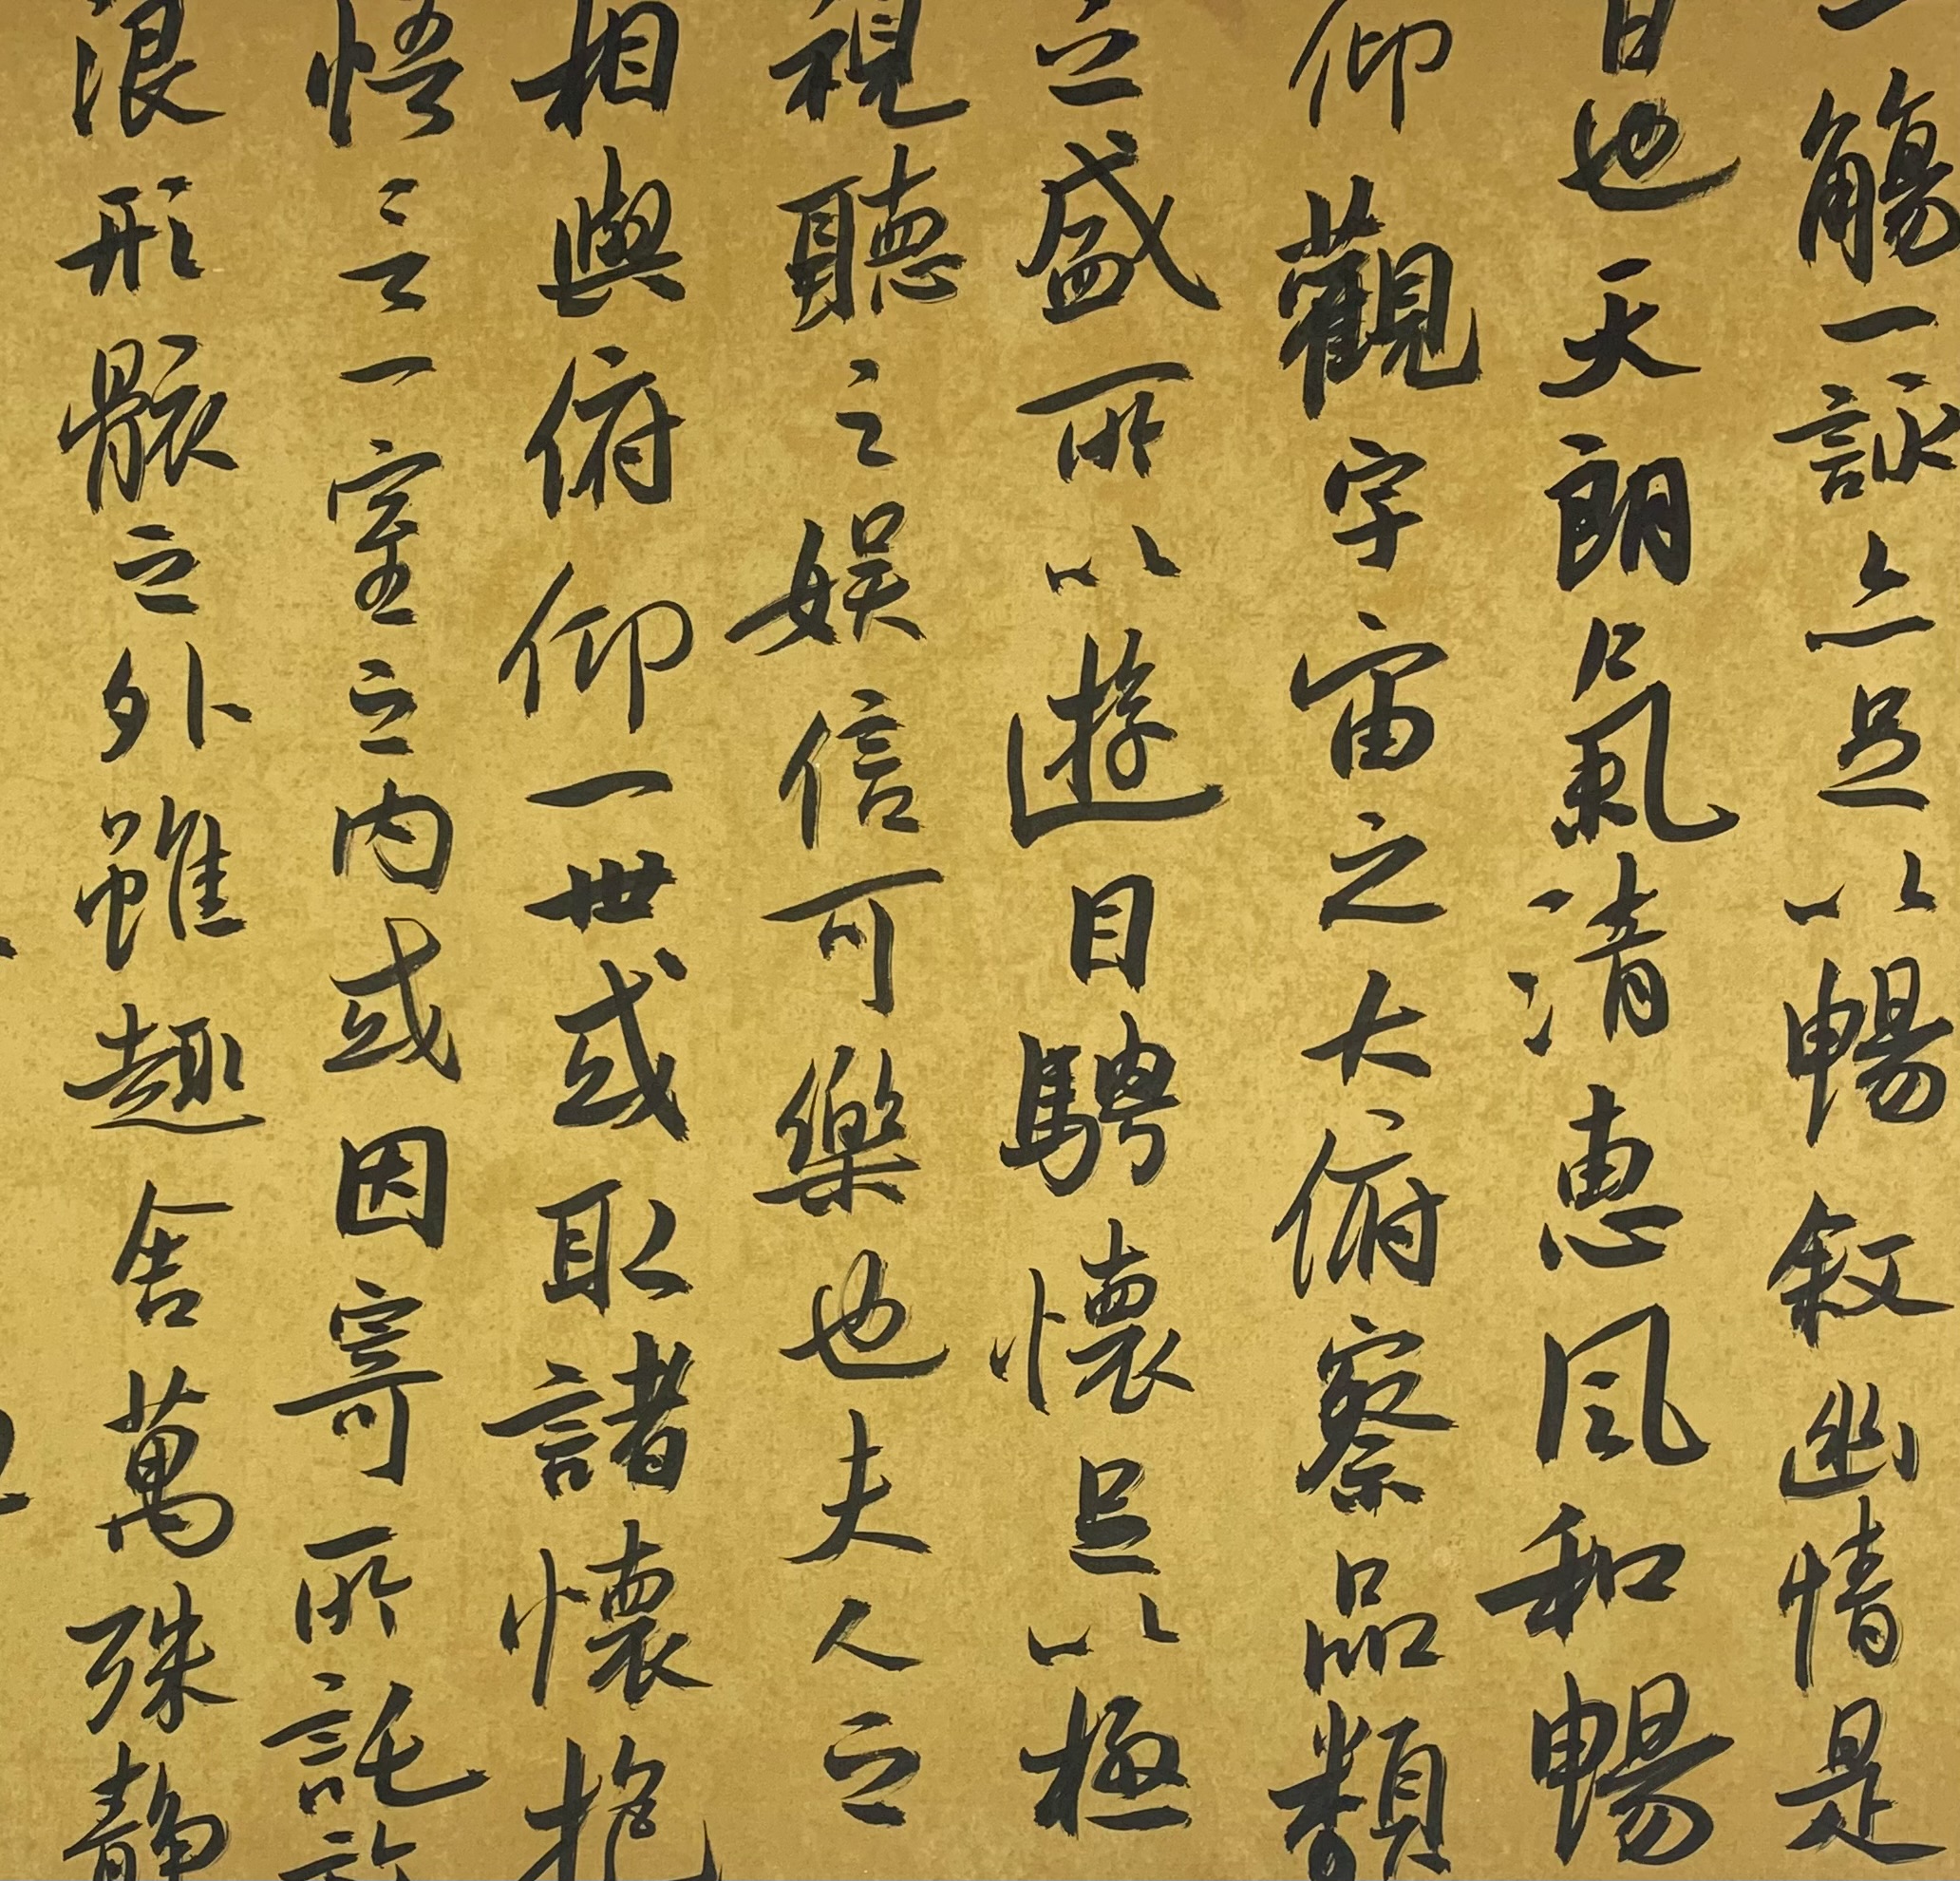 一觴一詠亦足以暢敘幽情是
日也天朗氣清惠風和暢
仰觀宇宙之大俯察品類
之盛所以遊目騁懷足以極
視聽之娛信可樂也夫人之
相與俯仰一世或取諸懷抱
悟言一室之內或因寄所託放
浪形骸之外雖趣舍萬殊靜